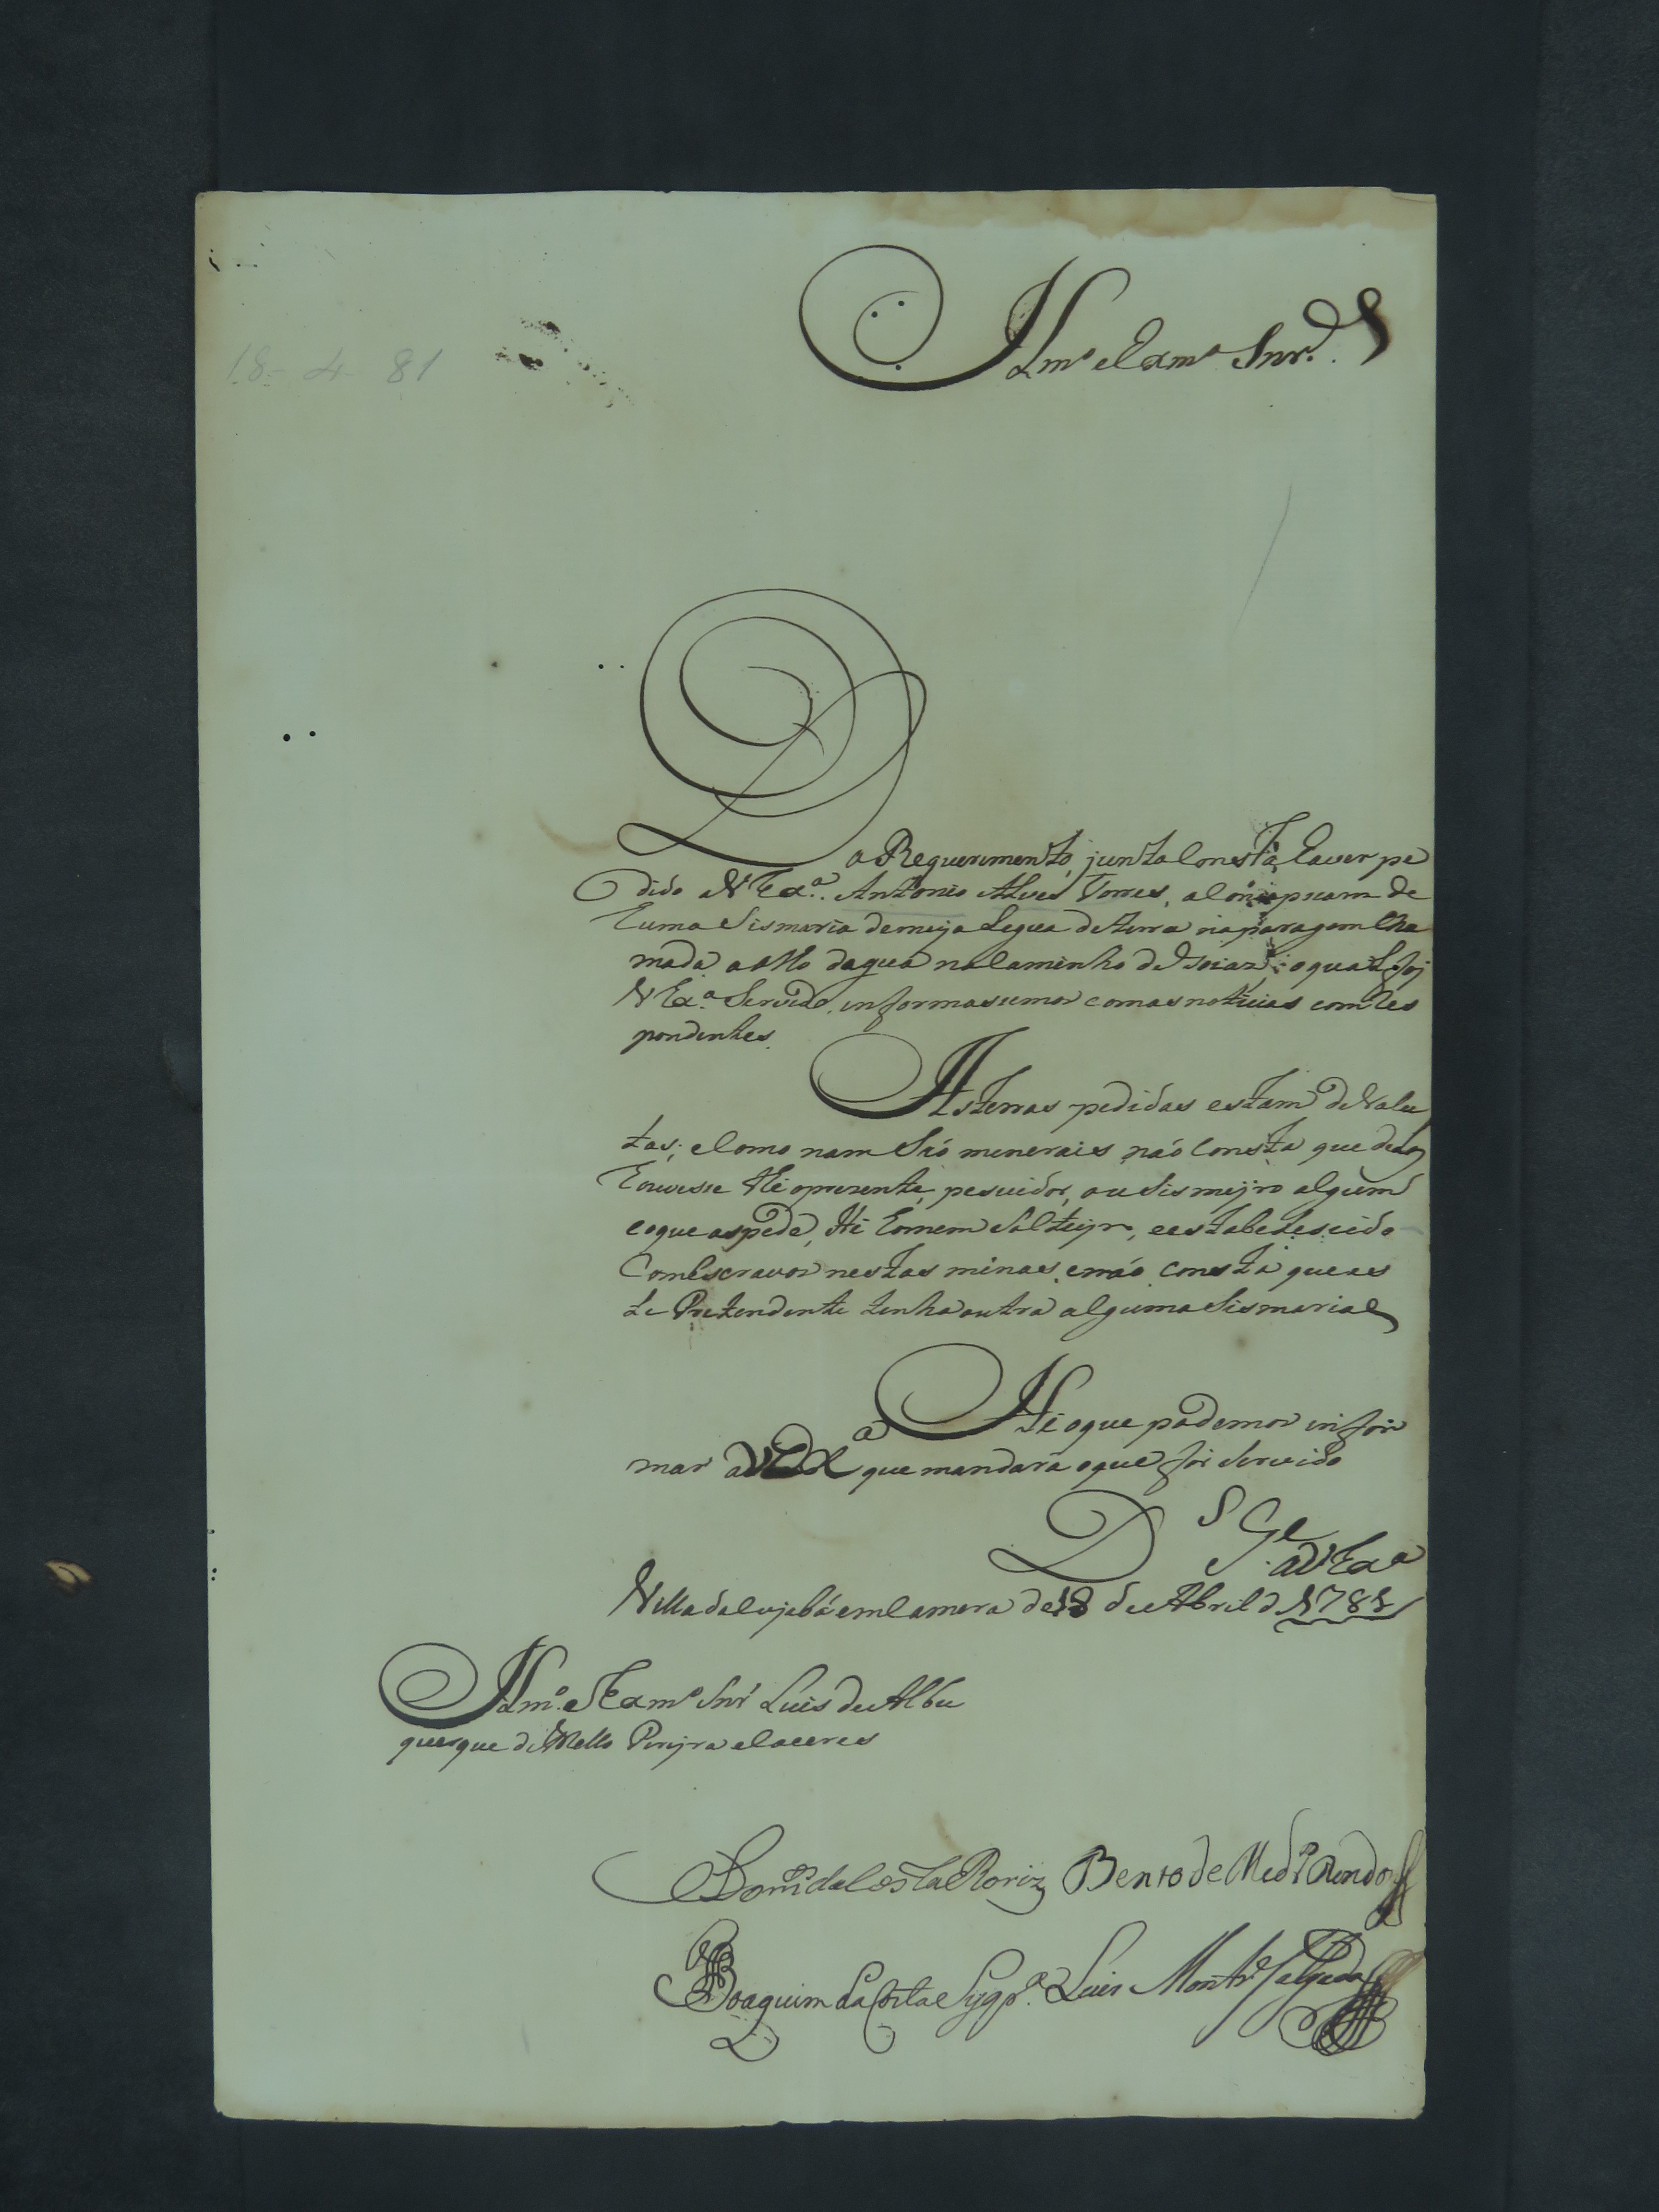 18-4-81
Illmº eExmº Snr.
Do Requerimento junto Consta haver pe
dido a V Exª. Antonio Alves Torres, a
huma Sismaria demeya Legoa deterra naparagem Cha
mada oolho dagua noCaminho de Goiaz; oqual foi
V Exª Servido, informasemos comasnotiçias corres
pondentes.
Asterras pedidas estam deValu
tas; eComo nam Saó minerais naó Consta que dellas
houvesse Athe oprezente, pesuidor, ou Sismeyro algum
eoque aspede, He homem Solteyro, eestabelescido
ComEscravos nestas minas, enaó consta quees
te Pretendente tenha outra alguma Sismaria
He oque podemos infor
mar aVExª que mandara oque for Servido
D S Ge
aVExª
Villa doCujabá emCamera de 18 de Abril de 1781
Illmº. e Exmº Snr Luis de Albu
querque de Mello Pereyra eCaceres
daCosta Roriz Bento de Medrº Rendo
Joaquim da Costa Syqrª. Luis Montrº Salgado